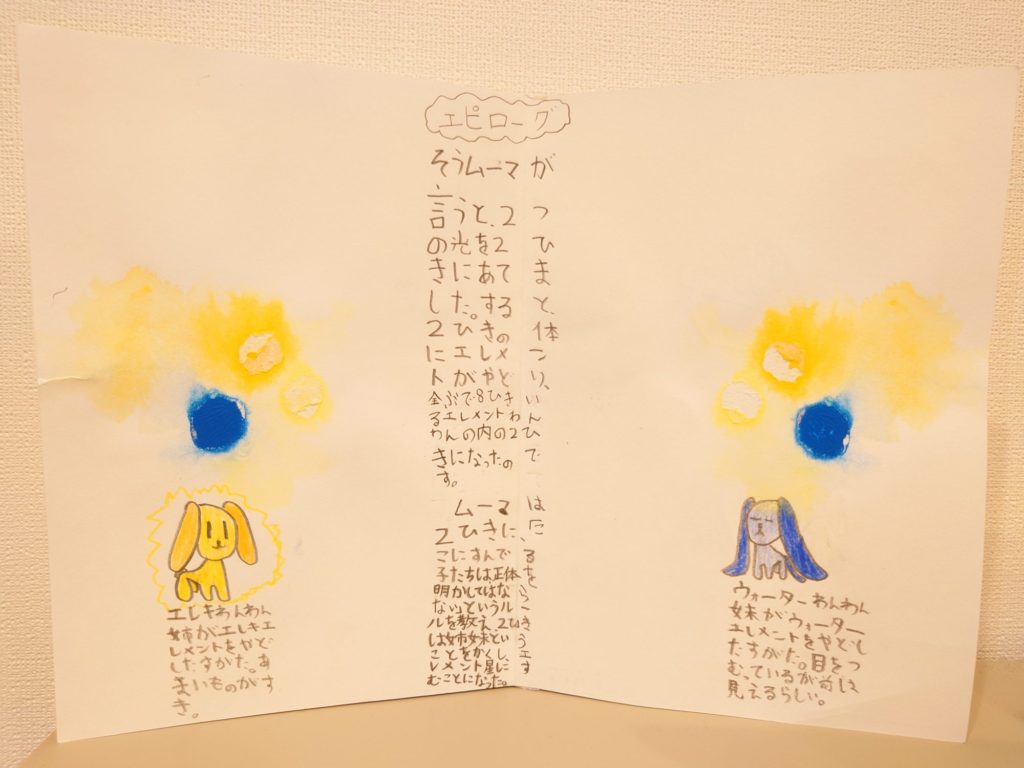 エピローグ
そうムーマが
言うと、2つ
の光を2ひ
きにあてま
した。すると、
2ひきの体
にエレメン
トがやどり、
全ぶで8ひきい
るエレメントわん
わんの内の2ひ
きになったので
す。
ムーマは
2ひきに、こ
こにすんでる
子たちは正体を
明かしてはなら
ない」というルー
ルを教え、2ひき
は姉妹という
ことをかくし、エ
レメント星にす
むことになった。
エレキわんわん
姉がエレキエ
レメントをやど
したすがた。あ
まいものがす
き。
ウォーターわんわん
妹がウォーター
エレメントをやどし
たすがた。目をつ
むっているが前は
見えるらしい。